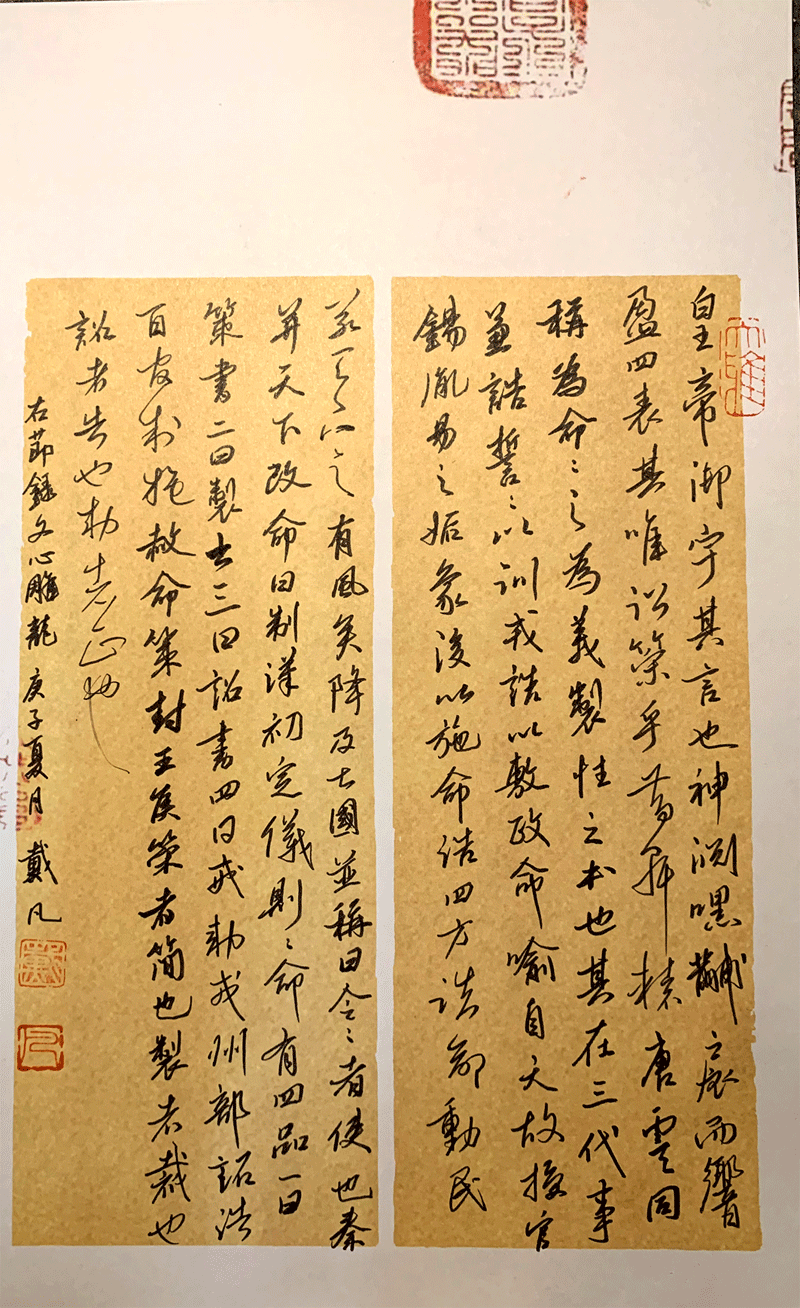 皇帝御宇其言也神渕嘿黼扆而響
盈四表其唯詔策乎昔軒轅唐虞同
稱為命〻之為義製性之本也其在三代事
兼誥誓〻以訓戎誥以敷政命喻自天故授官
錫胤易之姤象後以施命誥四方誥命動民
若天下之有風矣降及七國並稱曰令〻者使也秦
并天下改命曰制漢初定儀則〻命有四品一曰
策書二曰製書三曰詔書四曰戒勅戒州部詔誥
百官制施赦命策封王侯策者簡也製者裁也
詔者告也勅者正也
右節錄文心雕龍 庚子夏月 戴凡
戴
凡